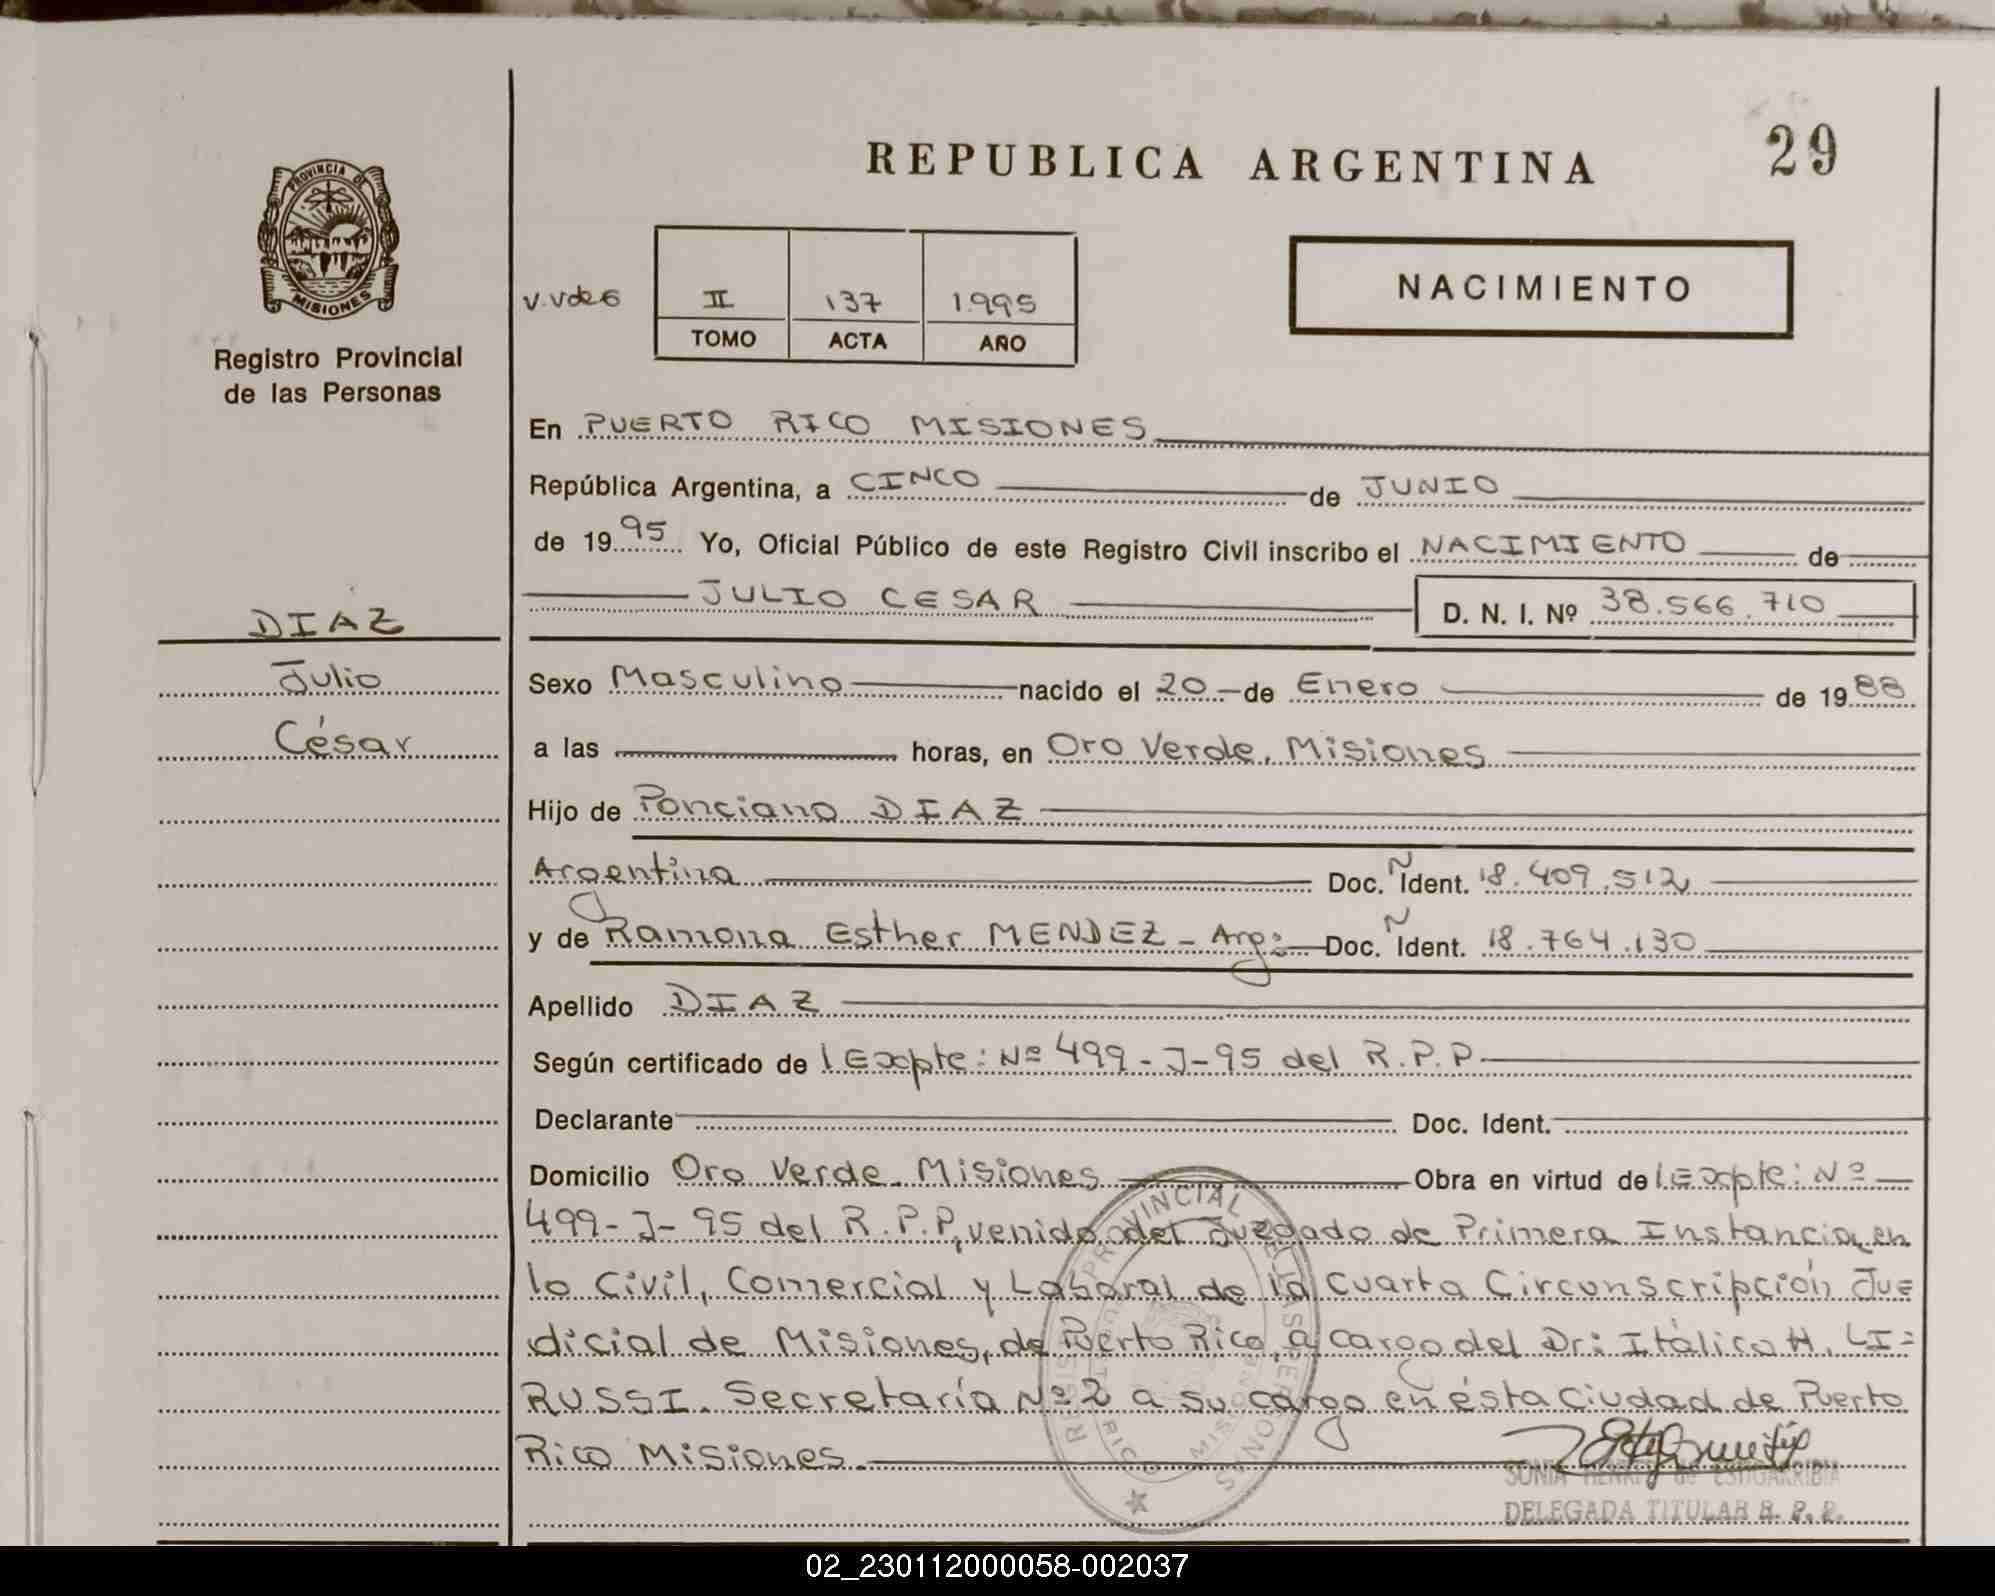 REPUBLICA ARGENTINA
29
PROVINCIA DE
MISIONES
Registro Provincial
de las Personas
NACIMIENTO
v.vde6
II 137 1.995
TOMO ACTA AÑO
En PUERTO RICO MISIONES
República Argentina, a CINCO de JUNIO
de 1995 Yo, Oficial Público de este Registro Civil inscribo el NACIMIENTO de
JULIO CESAR D. N. I. Nº 38.566.710
DIAZ
Julio
César
Sexo Masculino nacido el 20 de Enero de 1988
a las horas, en Oro Verde, Misiones
Hijo de Ponciano DIAZ
Argentina Doc. Ñ Ident. 18.409.512
y de Ramona Esther MENDEZ - Arg: Doc. Ñ Ident. 18.764.130
Apellido DIAZ
Según certificado de / Expte: Nº 499-J-95 del R.P.P.
Declarante Doc. Ident.
Domicilio Oro Verde. Misiones Obra en virtud de / Expte: Nº
499-J-95 del R.P.P, venido del Juzgado de Primera Instancia, en
lo Civil, Comercial y Laboral de la Cuarta Circunscripción Ju=
dicial de Misiones, de Puerto Rico, a cargo del Dr: Itálico H. LI=
RUSSI. Secretaría Nº 2 a su cargo en ésta Ciudad de Puerto
Rico Misiones.
REGISTRO PROVINCIAL DE LAS PERSONAS
PUERTO RICO MISIONES
SONIA HENRFY de ESTIGARRIBIA
DELEGADA TITULAR R. P. P.
02_230112000058-002037